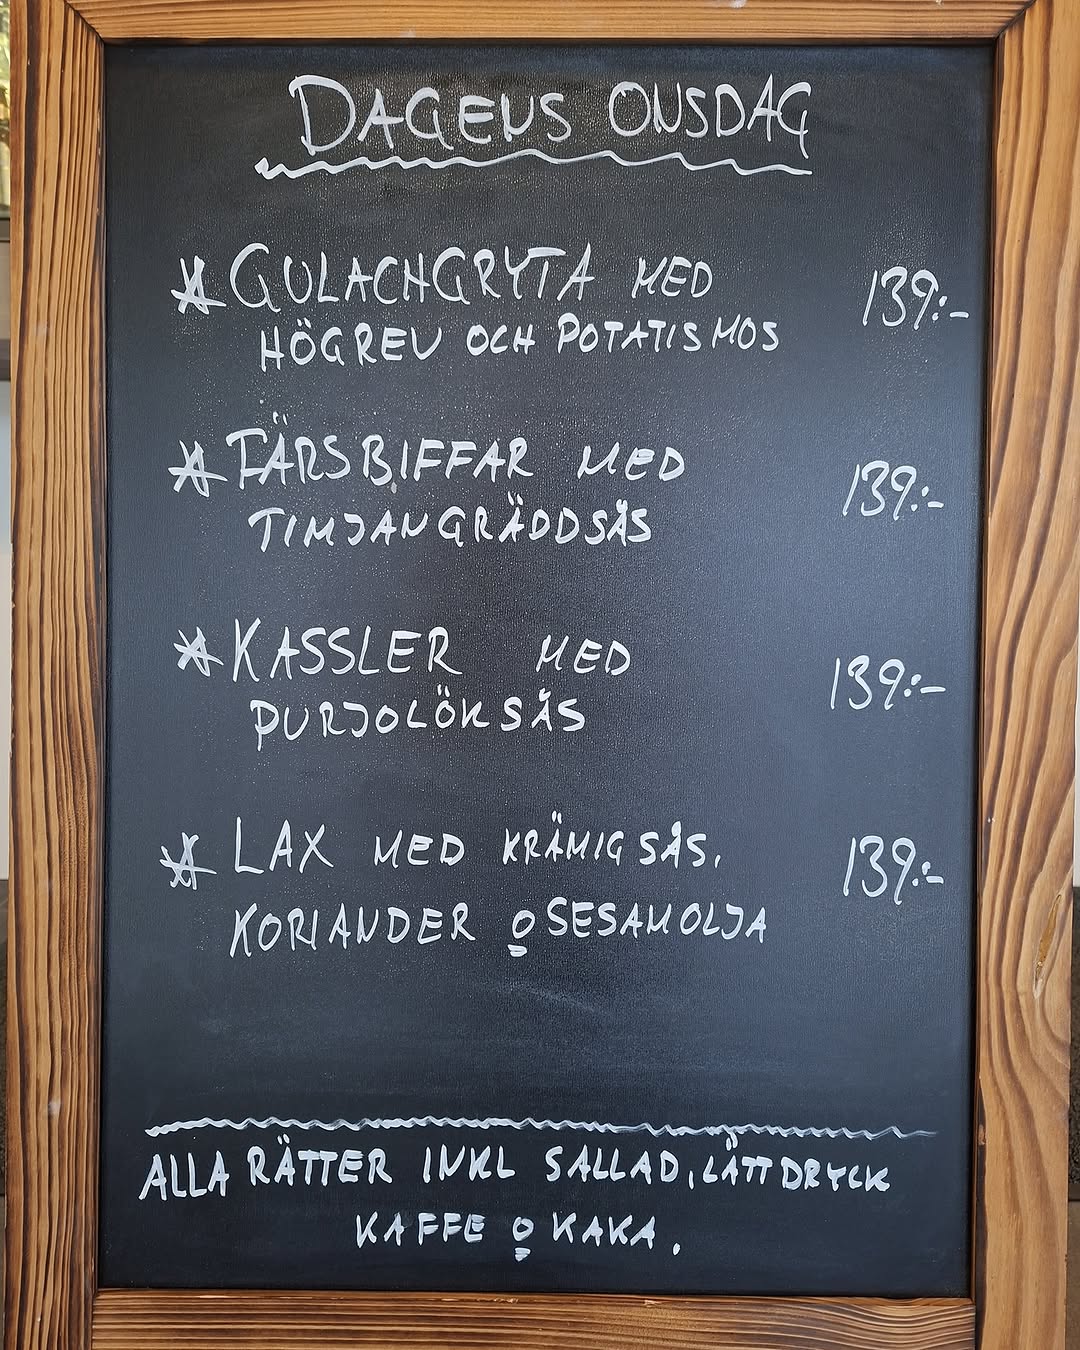 DAGENS ONSDAG
* GULACHGRYTA MED 139:-
HÖGREV OCH POTATISMOS
* FÄRSBIFFAR MED 139:-
TIMJANGRÄDDSÅS
* KASSLER MED 139:-
PURJOLÖKSÅS
* LAX MED KRÄMIG SÅS, 139:-
KORIANDER o SESAMOLJA
ALLA RÄTTER INKL SALLAD, LÄTTDRYCK
KAFFE o KAKA.